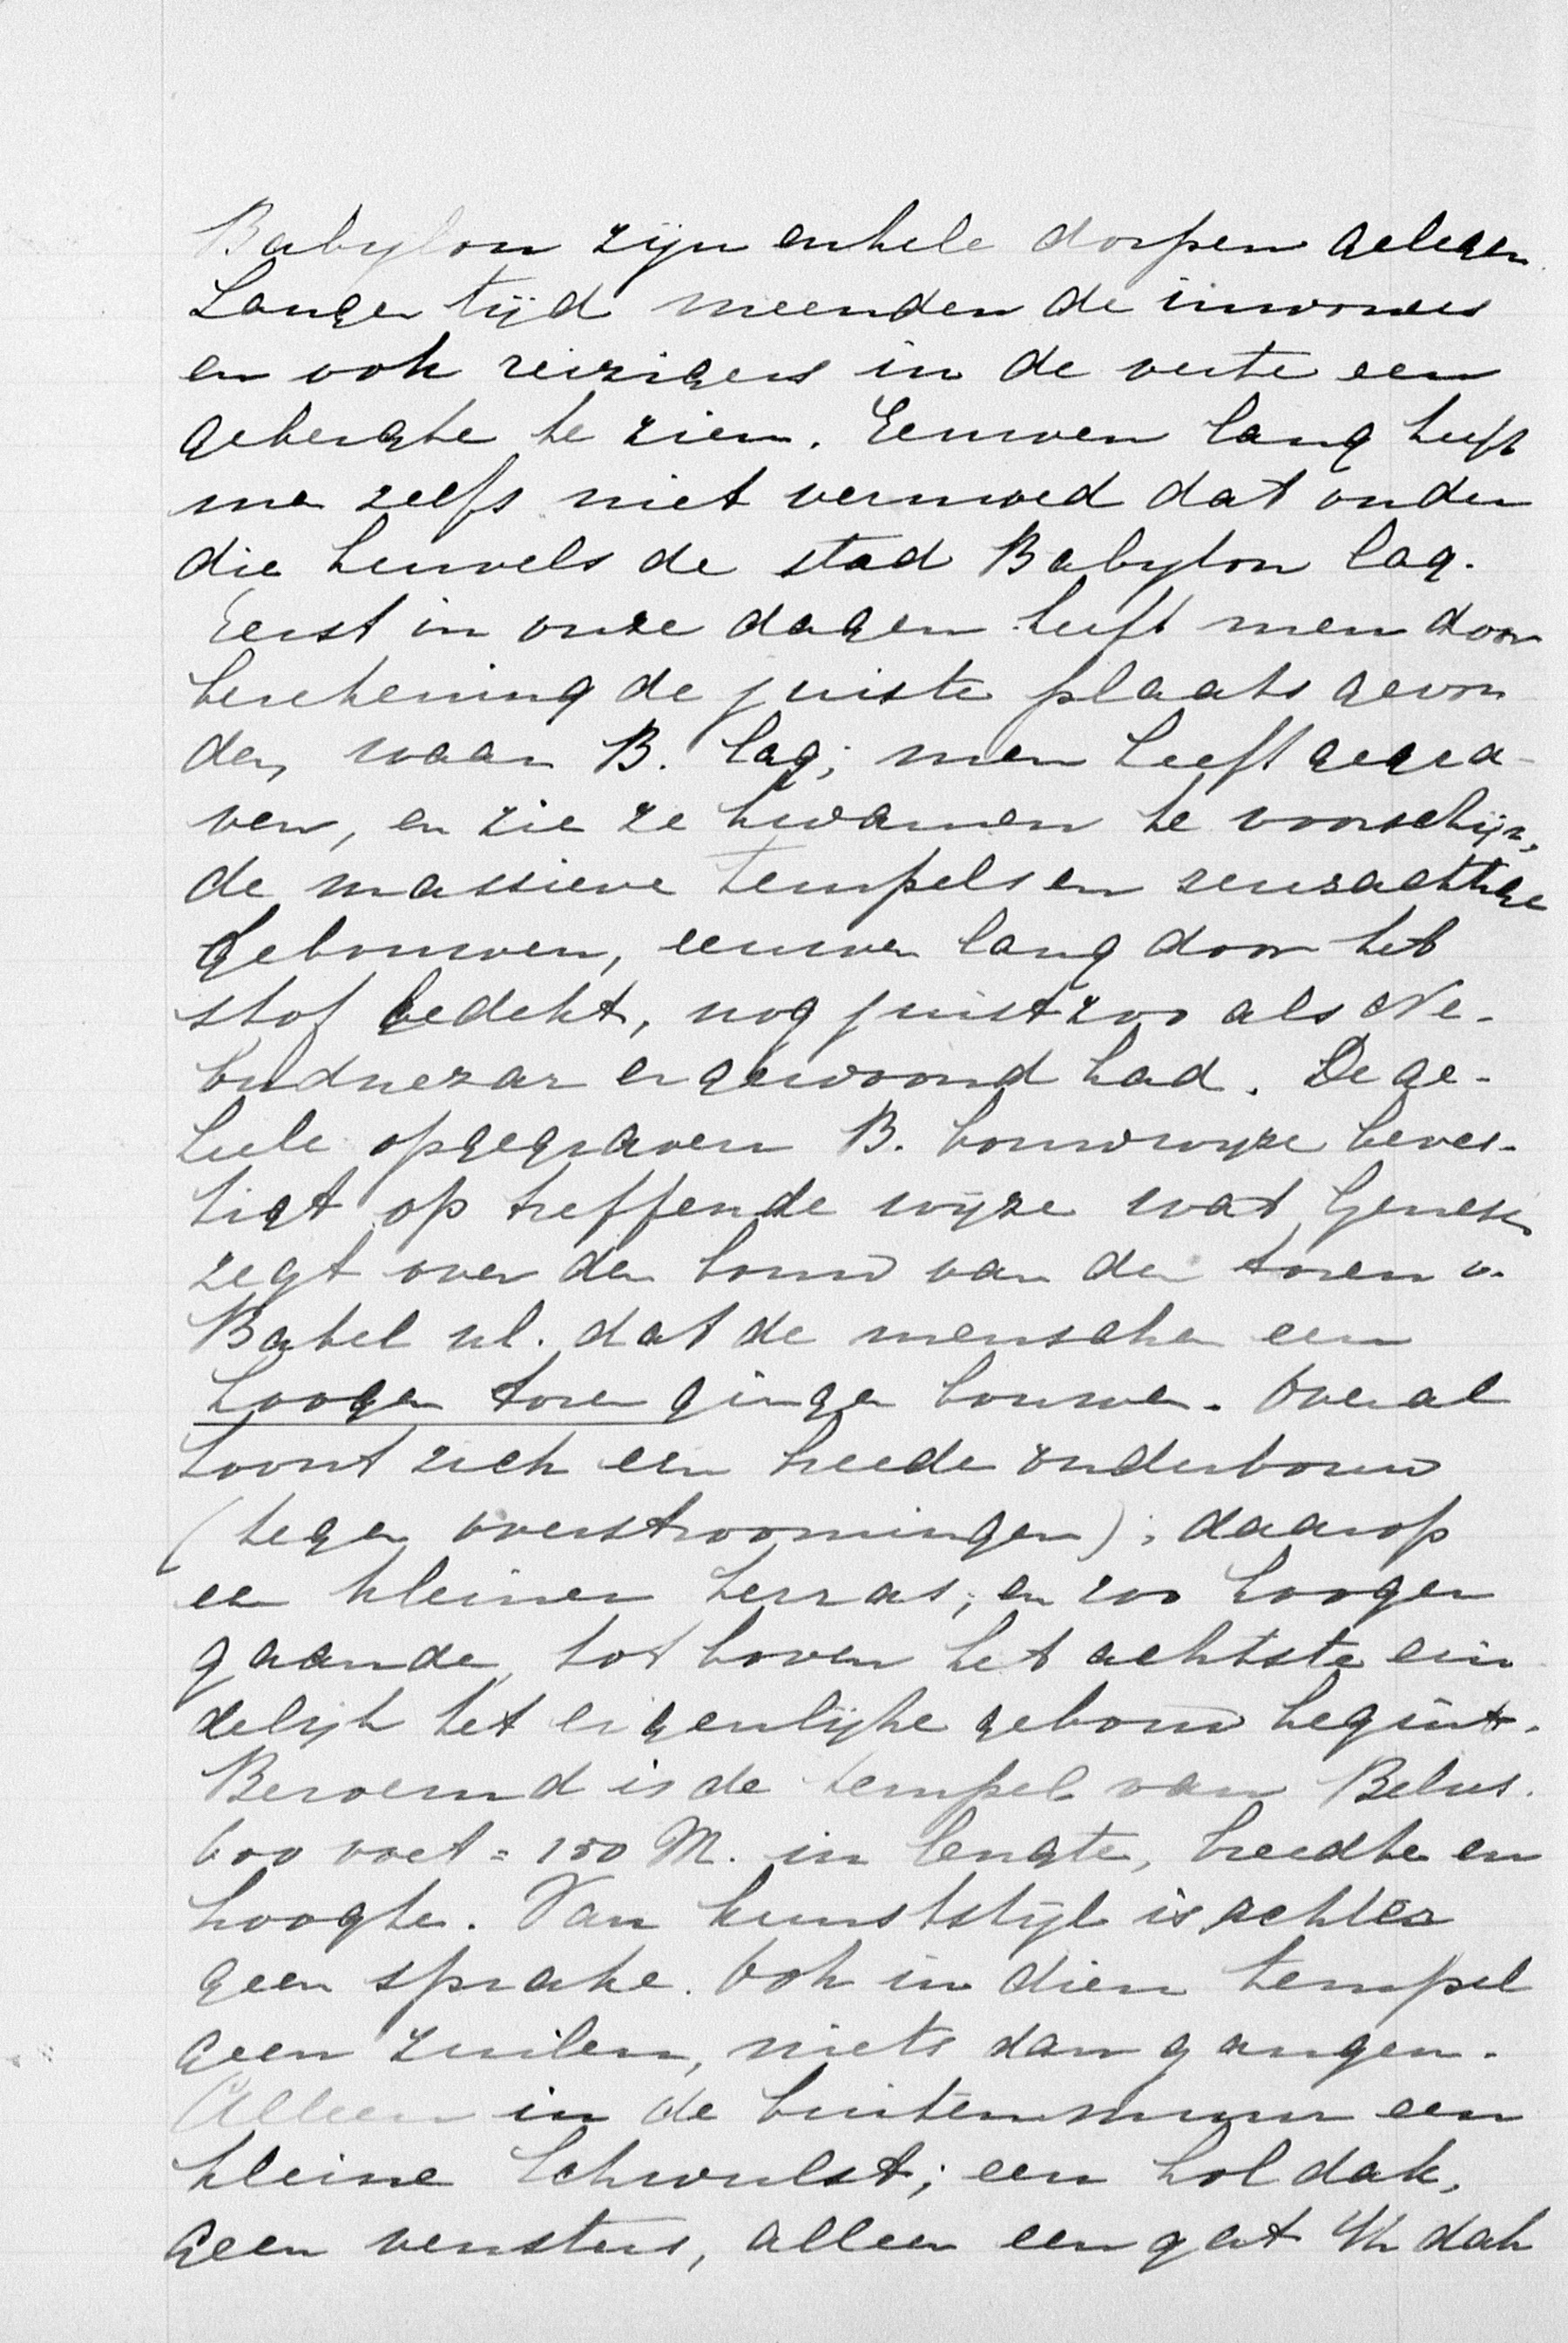 Babylon zijn enkele dorpen gelegen.
Langen tijd meenden de inwoners
en ook reizigers in de verte een
gebergte te zien. Eeuwen lang heeft
men zelfs niet vermoed dat onder
die heuvels de stad Babylon lag.
Eerst in onze dagen heeft men door
berekening de juiste plaats gevon
den waar B. lag; men heeft gegra-
ven, en zie ze kwamen te voorschijn,
de massieve tempels en reusachtige
gebouwen, eeuwen lang door het
stof bedekt, nog juist zoo als Ne-
budnezar er gewoond had. De ge-
heele opgegraven B. bouwwijze beves-
tigt op treffende wijze wat Genesis
zegt over den bouw van den toren v.
Babel nl. dat de menschen een
hoogen toren gingen bouwen. Overal
toont zich een breede onderbouw
(tegen overstroomingen); daarop
een kleiner terras; en zoo hooger
gaande, tot boven het achtste ein
delijk het eigenlijke gebouw begint.
Beroemd is de tempel van Belus.
600 voet = 150 M. in lengte, breedte en
hoogte. Van kunststijl is echter
geen sprake. Ook in dien tempel
geen zuilen, niets dan gangen.
Alleen in de buitenmuur een
kleine schwulst; een hol dak,
geen vensters, alleen een gat i/h dak